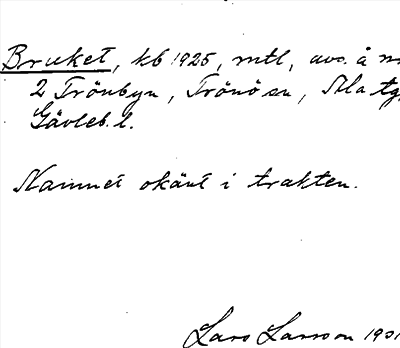 Bruket, kb 1925, mtl, avs. å n
2 Trönbyn, Trönö sn, Ala tg.
Gävleb. l.
Namnet okänt i trakten.
Lars Larsson 19